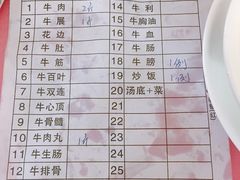 1 牛肉 14 牛利
2 牛展 15 牛胸油
3 花边 16 牛血
4 牛肚 17 牛肠
5 牛筋 18 牛膀 1例
6 牛百叶 19 炒饭
7 牛双连 20 汤底+菜
8 牛心顶 21
9 牛骨髓 22
10 牛肉丸 23
11 牛生肠 24
12 牛排骨 25